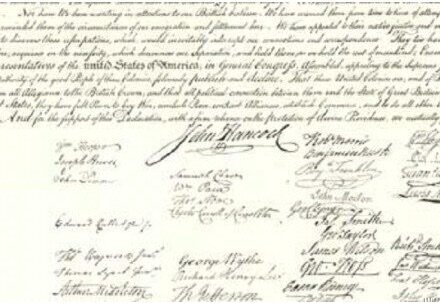 Nor have We been wanting in attentions to our British brethren. We have warned them from time to time of
them of the circumstances of our emigration and settlement here. We have appealed to their native justice and
to disavow these usurpations, which would inevitably interrupt our connections and correspondence. They too have
in the necessity, which denounces our Separation, and hold them, as we hold the rest of mankind, Enemies
resentatives of the united States of America, in General Congress, Assembled, appealing to the Supreme
Authority of the good People of these Colonies, solemnly publish and declare, That these United Colonies are, and of
all Allegiance to the British Crown, and that all political connection between them and the State of Great Britain
States, they have full Power to levy War, conclude Peace, contract Alliances, establish Commerce, and to do all other
And for the support of this Declaration, with a firm reliance on the protection of divine Providence, we mutually
John Hancock
Wm Hooper
Joseph Hewes
John Penn
Edward Rutledge
Thos Heyward Junr
Thomas Lynch Junr
Arthur Middleton
Samuel Chase
Wm Paca
Thos Stone
Charles Carroll of Carrollton
George Wythe
Richard Henry Lee
Th Jefferson
Robt Morris
Benjamin Rush
Benj Franklin
John Morton
Geo Clymer
Jas Smith
Geo Taylor
James Wilson
Geo Ross
Caesar Rodney